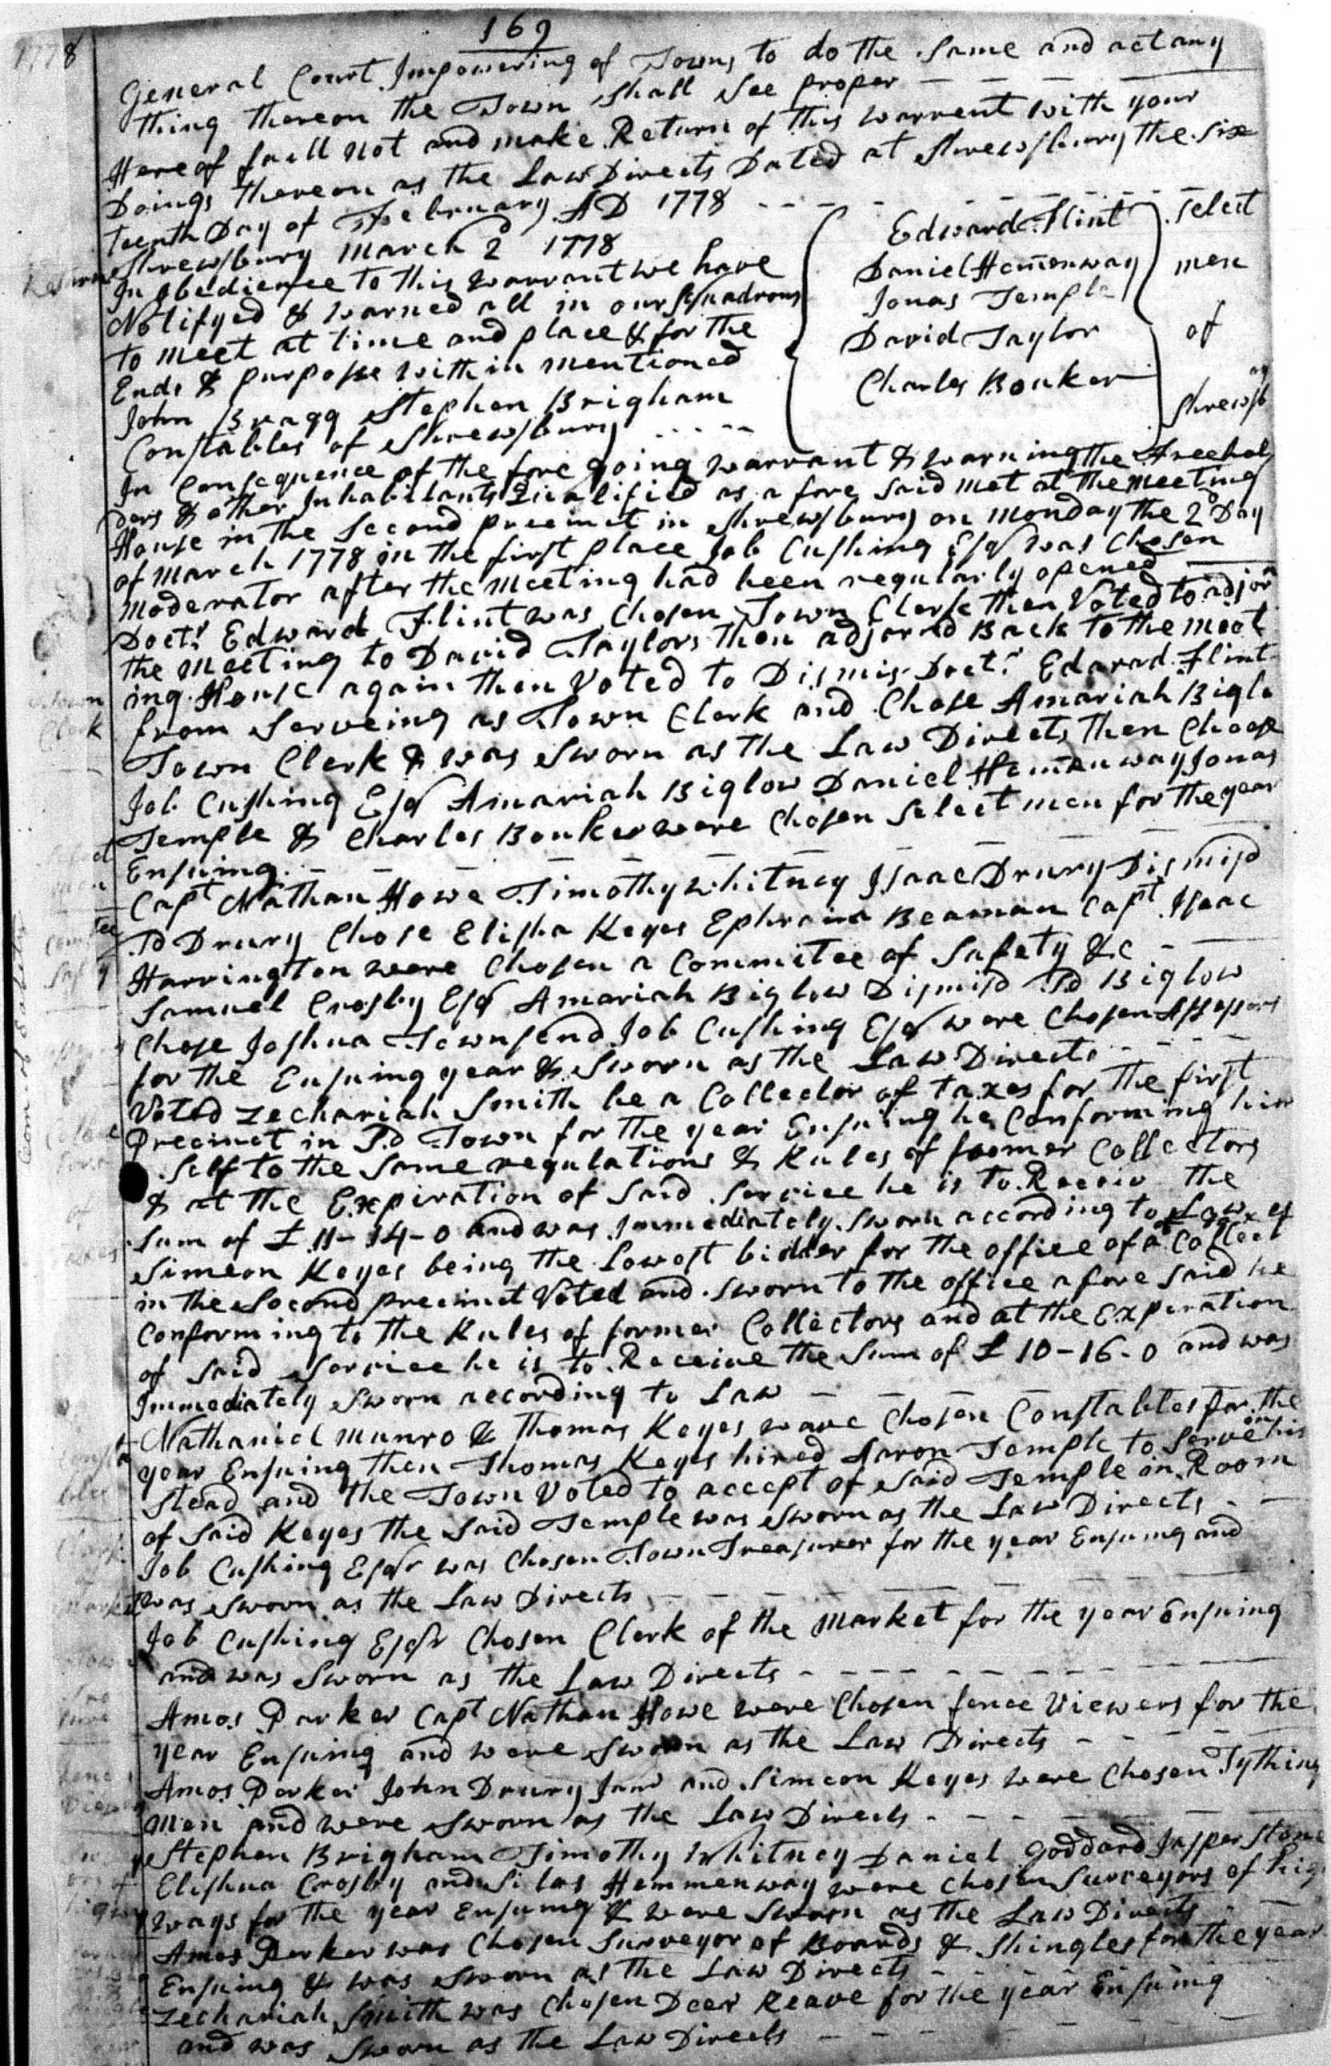 169
1778
General Court Impowering of Towns to do the same and act any
thing thereon the Town shall See proper
Hereof fail not and make Return of this warrent with your
Doings thereon as the Law Directs Dated at Shrewsbury the Six
teenth Day of February AD 1778
Edward Flint
Daniel Hemenway
Jonas Temple
David Taylor
Charles Bouker
Select
men
of
Shrewsb
ay
Shrewsbury March 2 1778
In obedience to this warrant we have
Notifyed & warned all in our Squadrons
to meet at time and place & for the
Ends & purpose within mentioned
John Bragg Stephen Brigham
Constables of Shrewsbury
In Consequence of the fore going warrant & warning the Freehol
ders & other Inhabitants Qualified as a fore said met at the meeting
House in the Second precinct in Shrewsbury on monday the 2d Day
of march 1778 in the first place Job Cushing Esqr was Chosen
moderator after the meeting had been regularly opened
Doctr Edward Flint was Chosen Town Clerk then Voted to adjorn
the meeting to David Taylors then adjornd Back to the meet
ing House again then Voted to Dismis Doctr Edward Flint
from Serveing as Town Clerk and Chose Amariah Biglo
Town Clerk & was Sworn as the Law Directs then Choose
Job Cushing Esqr Amariah Biglow Daniel Hemenway Jonas
Temple & Charles Bouker were Chosen Select men for the year
Ensuing
Capt Nathan Howe Timothy Whitney Isaac Drury Dismisd
Sd Drury Chose Elisha Keyes Ephraim Beaman Capt Isaac
Harrington were Chosen a Committee of Safety &c
Samuel Crosby Esqr Amariah Biglow Dismisd Sd Biglow
Chose Joshua Townsend Job Cushing Esqr were Chosen Assessors
for the Ensuing year & Sworn as the Law Directs
Voted Zechariah Smith be a Collector of taxes for the first
Precinct in Sd Town for the year Ensuing he Conforming him
Self to the Same regulations & Rules of former Collectors
& at the Expiration of Said Service he is to Receiv the
Sum of £ 11-14-0 and was Immediately Sworn according to Law
Simeon Keyes being the Lowest bidder for the office of a Collect
in the Second precinct Voted and Sworn to the office a fore Said he
Conforming to the Rules of former Collectors and at the Expiration
of Said Service he is to Receive the Sum of £ 10-16-0 and was
Immediately Sworn according to Law
Nathaniel munro & Thomas Keyes ware Chosen Constables for the
year Ensuing then Thomas Keyes hired Aaron Temple to Serve in his
Stead and the Town Voted to accept of Said Temple in Room
of Said Keyes the Said Temple was Sworn as the Law Directs
Job Cushing Esqr was Chosen Town Treasurer for the year Ensuing and
was Sworn as the Law Directs
Job Cushing Esqr Chosen Clerk of the market for the year Ensuing
and was Sworn as the Law Directs
Amos Parker Capt Nathan Howe were Chosen fence Viewers for the
year Ensuing and were Sworn as the Law Directs
Amos Parker John Drury Junr and Simeon Keyes were Chosen Tything
Men and were Sworn as the Law Directs
Stephen Brigham Timothy Whitney Daniel Goddard Jasper Stone
Elishua Crosby and Silas Hemmenway were Chosen Surveyors of hig
ways for the year Ensuing & were Sworn as the Law Directs
Amos Parker was Chosen Surveyor of Boards & Shingles for the year
Ensuing & was Sworn as the Law Directs
Zechariah Smith was Chosen Deer Reave for the year Ensuing
and was Sworn as the Law Directs